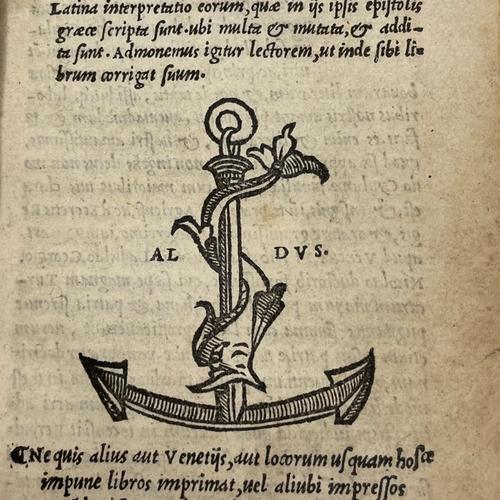 Latina interpretatio eorum, quæ in ijs ipsis epistolis
græce scripta sunt. ubi multa & mutata, & addi-
ta sunt. Admonemus igitur lectorem, ut inde sibi li-
brum corrigat suum.
AL DVS.
Ne quis alius aut Venetijs, aut locorum usquam hosce
impune libros imprimat, uel aliubi impressos